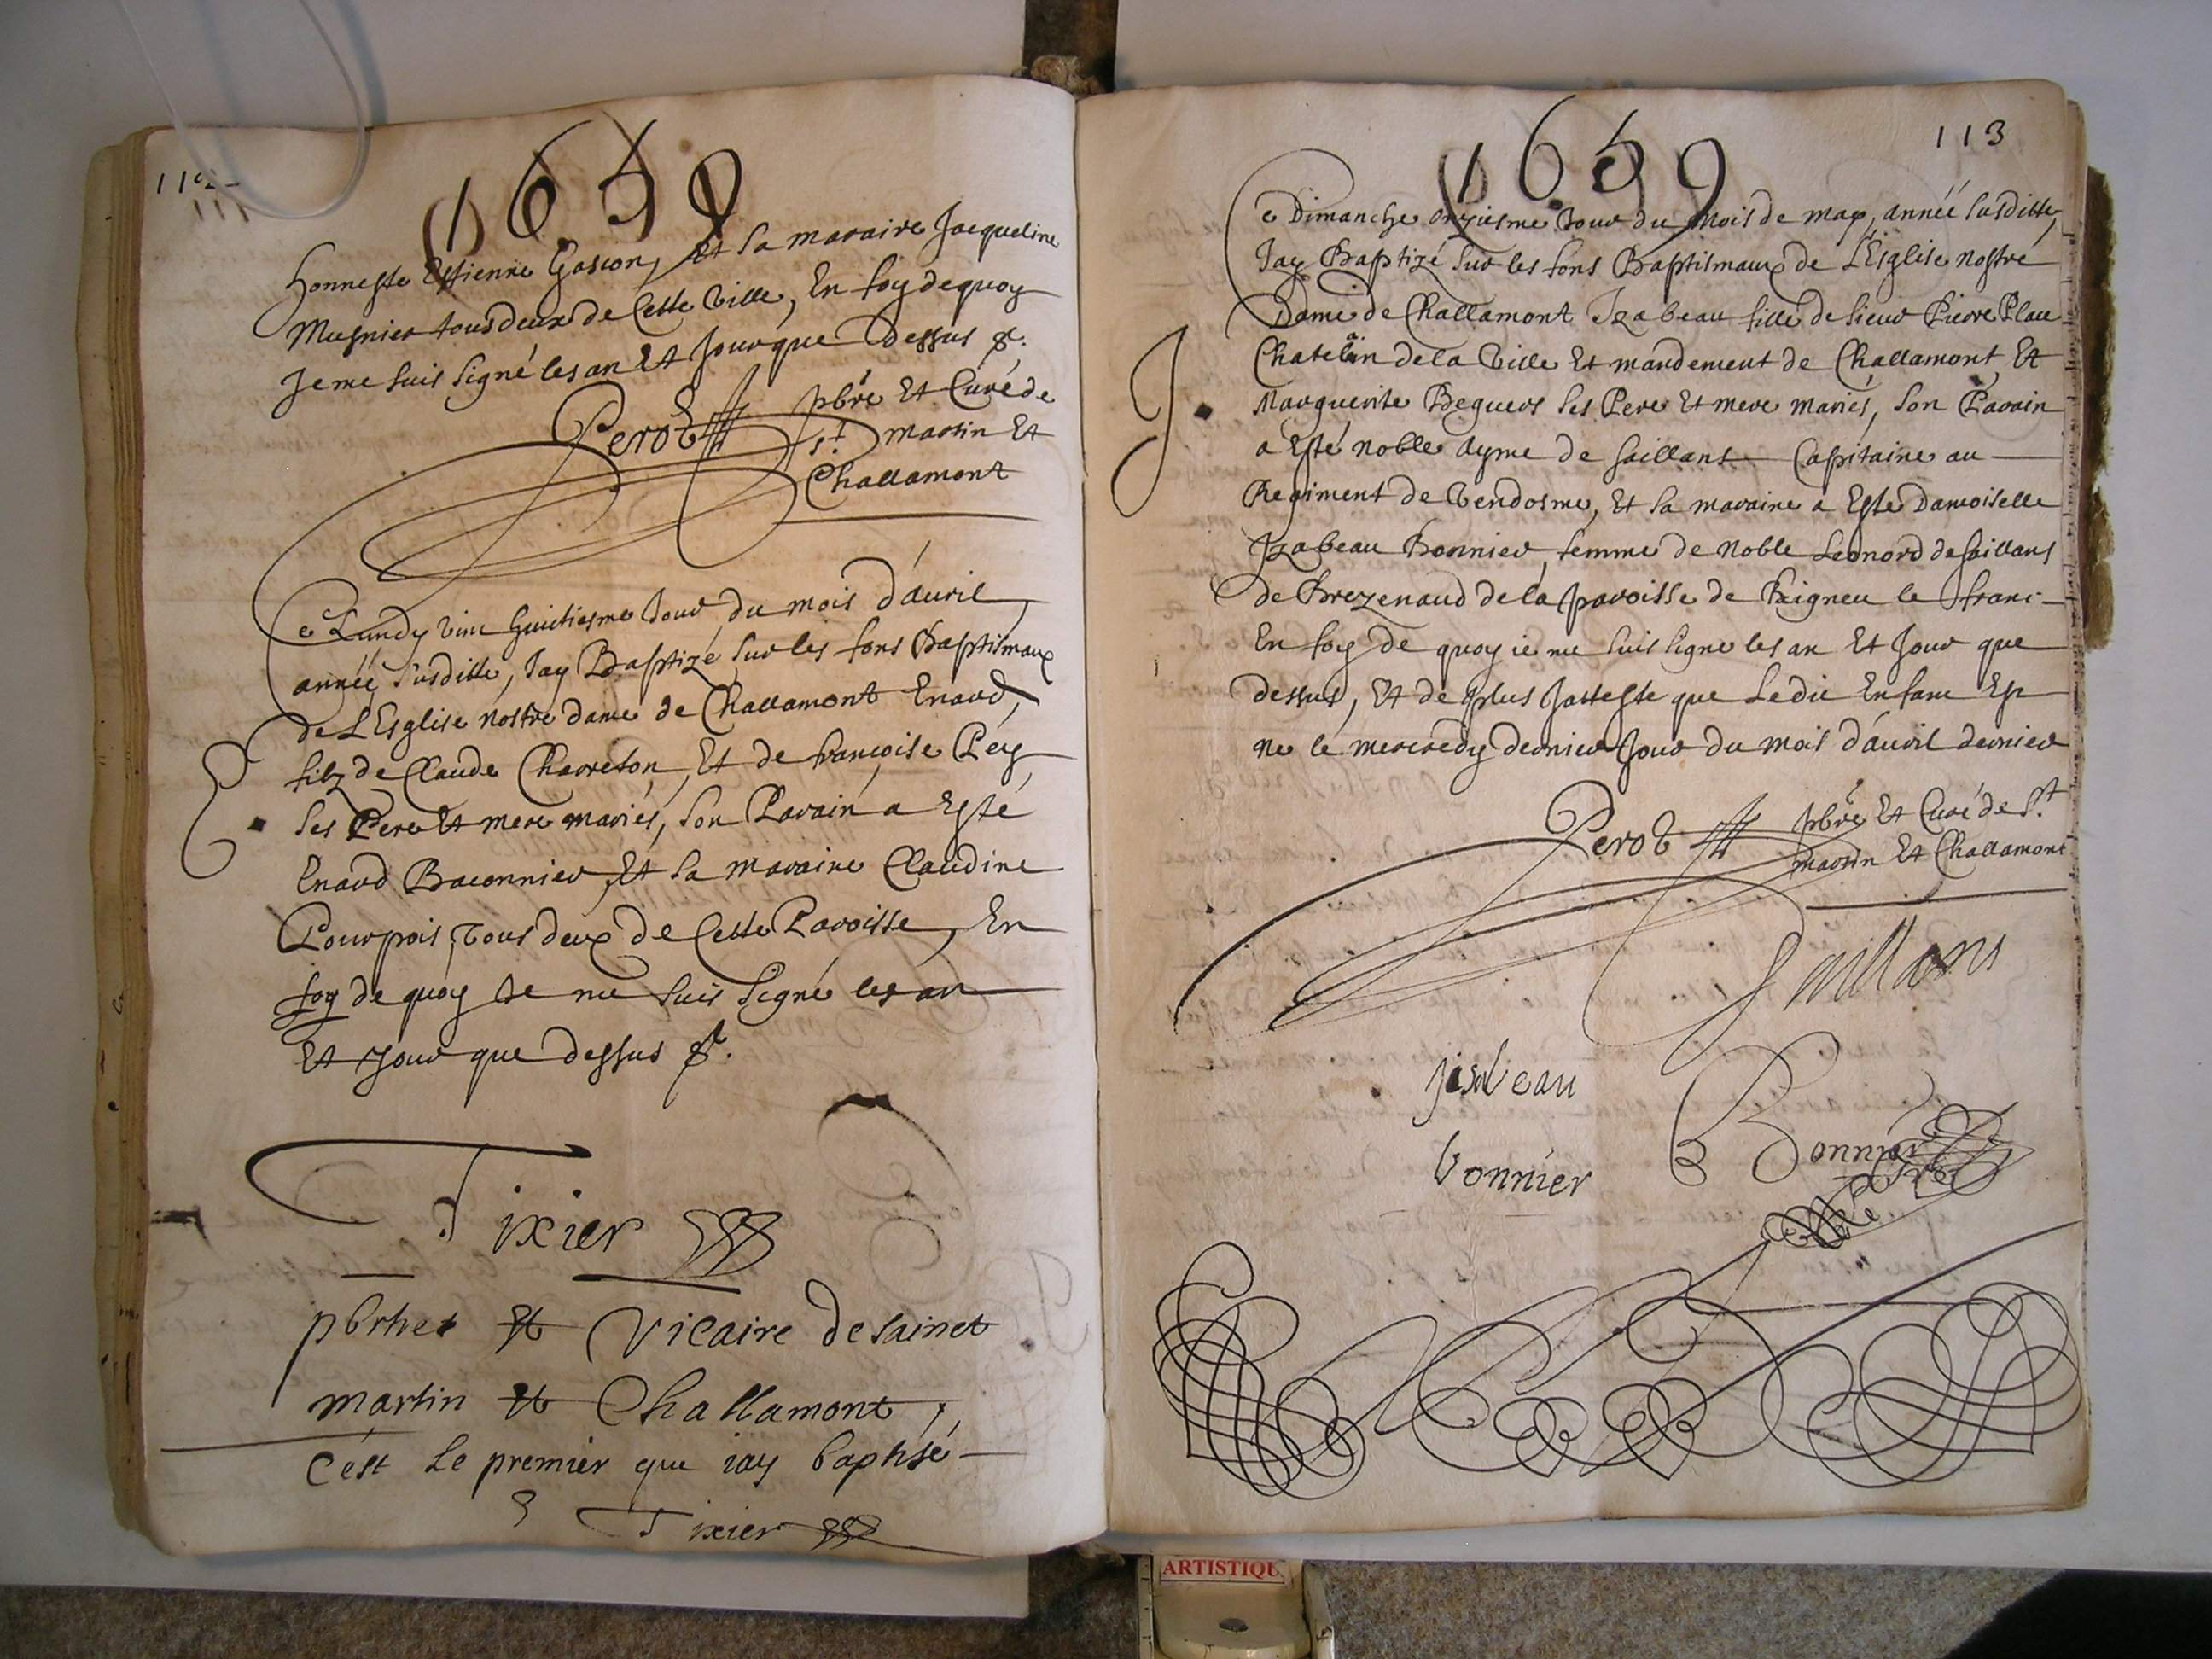 112
1659
honneste Estienne Gascon, Et sa maraire Jacqueline
Musnier tous deux de Cette Ville, En foy dequoy
Je me suis signé les an Et Jour que Dessus &.
Perot pbre Et Curé de
St martin Et
Challamont
Ce Lundy vint huictiesme Jour du mois d'auril
année susditte, Jay Baptizé sur les fons Baptismaux
de L'Esglise nostre dame de Challamont Enard,
filz de Claude Charreton, Et de françoise Péy
ses Pere Et mere mariés, son Parain a Esté
E.
Enard Baconnier, Et sa maraine Claudine
Pourpois, Tous deux de Cette Paroisse, En
foy de quoy Je me suis signé les an
Et Jour que dessus &.
Tixier
pbrhe Et Vicaire de sainct
martin Et Challamont,
C'ést Le premier que iay baptisé
Tixier
113
1659
Ce Dimanche onziesme Jour du mois de may, année susditte,
Jay Baptizé sur les fons Baptismaux de L'Esglise nostre
Dame de Challamont Izabeau fille de sieur Pierre Plau
Chatelain de la Ville Et mandement de Challamont, Et
J.
Marguerite Beguers ses Pere Et mere mariés, son Parain
a Esté noble Ayme de saillans Capitaine au
Regiment de Vendosme, Et sa maraine a Esté Damoiselle
Izabeau Bonnier, femme de noble Leonord de saillans
de Brezenaud de la paroisse de Rigneu le franc
En foy de quoy ie me suis signe les an Et Jour que
dessus, Et de plus Jatteste que Ledit Enfant Est
ne le mercredy dernier Jour du mois d'auril dernier
Perot pbre Et Curé de St
martin Et Challamont
Saillans
jisabeau
bonnier
Bonnier
ARTISTIQU